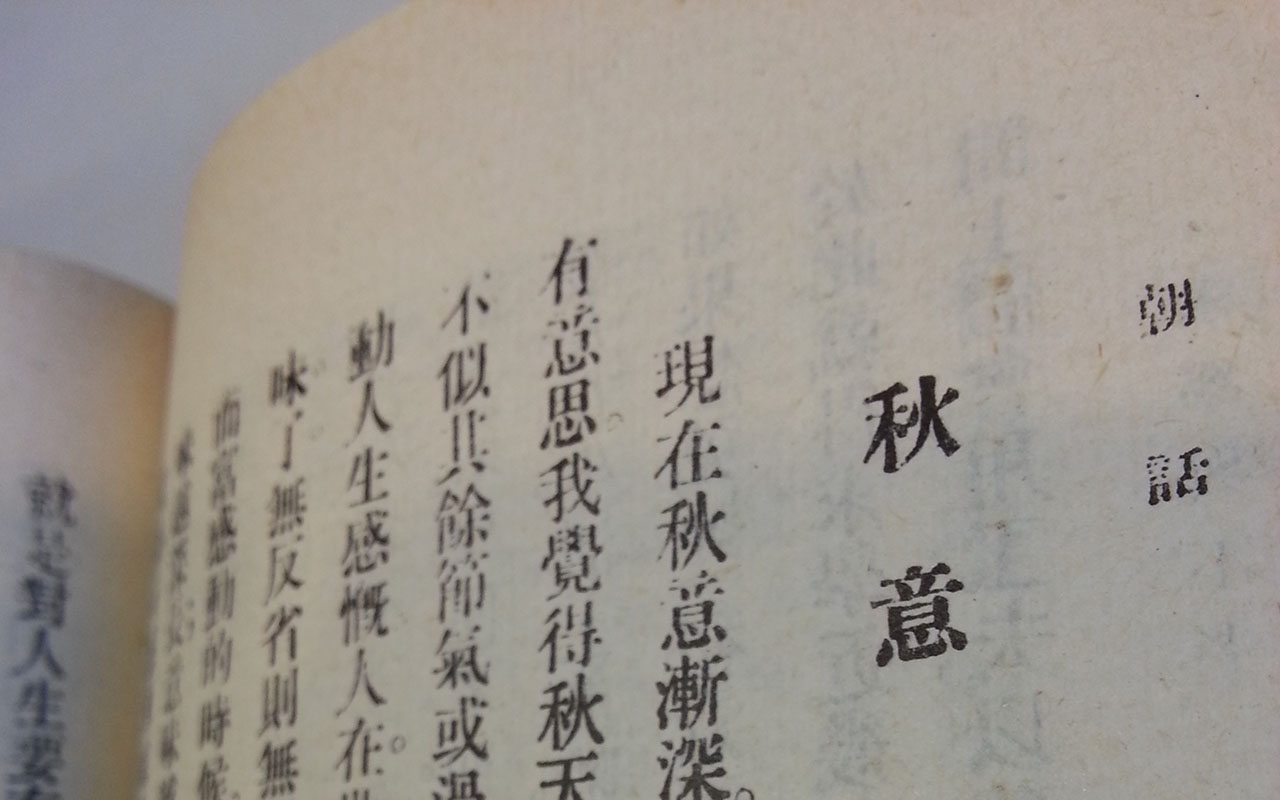 朝話
秋意
現在秋意漸深。
有意思。我覺得秋天
不似其餘節氣或過
動人生感慨人在。世
味。了無反省則無
而富感動的時候。
就是對人生要有